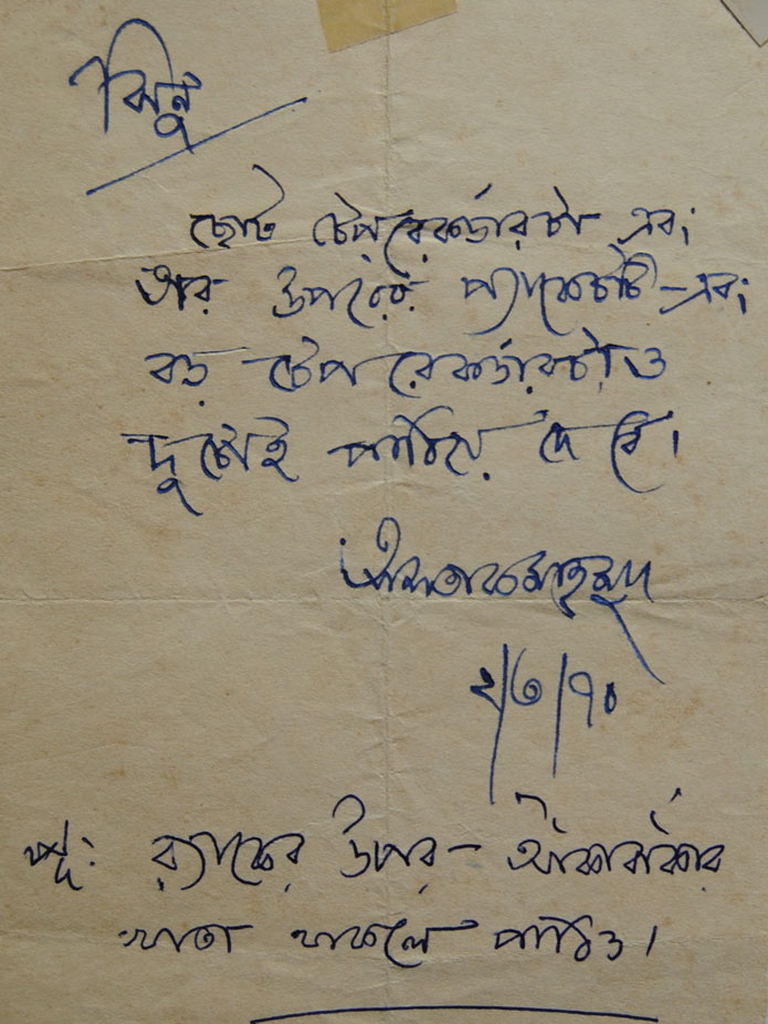 ঝিনু
ছোট টেপরেকর্ডারটা এবং
তার উপরের প্যাকেটটি - এবং
বড় টেপ রেকর্ডারটাও
দুটোই পাঠিয়ে দেবে।
আলতাফ মাহমুদ
২/৩/৭০
পুঃ র‍্যাকের উপর - আঁকাবাঁকার
খাতা থাকলে পাঠিও।